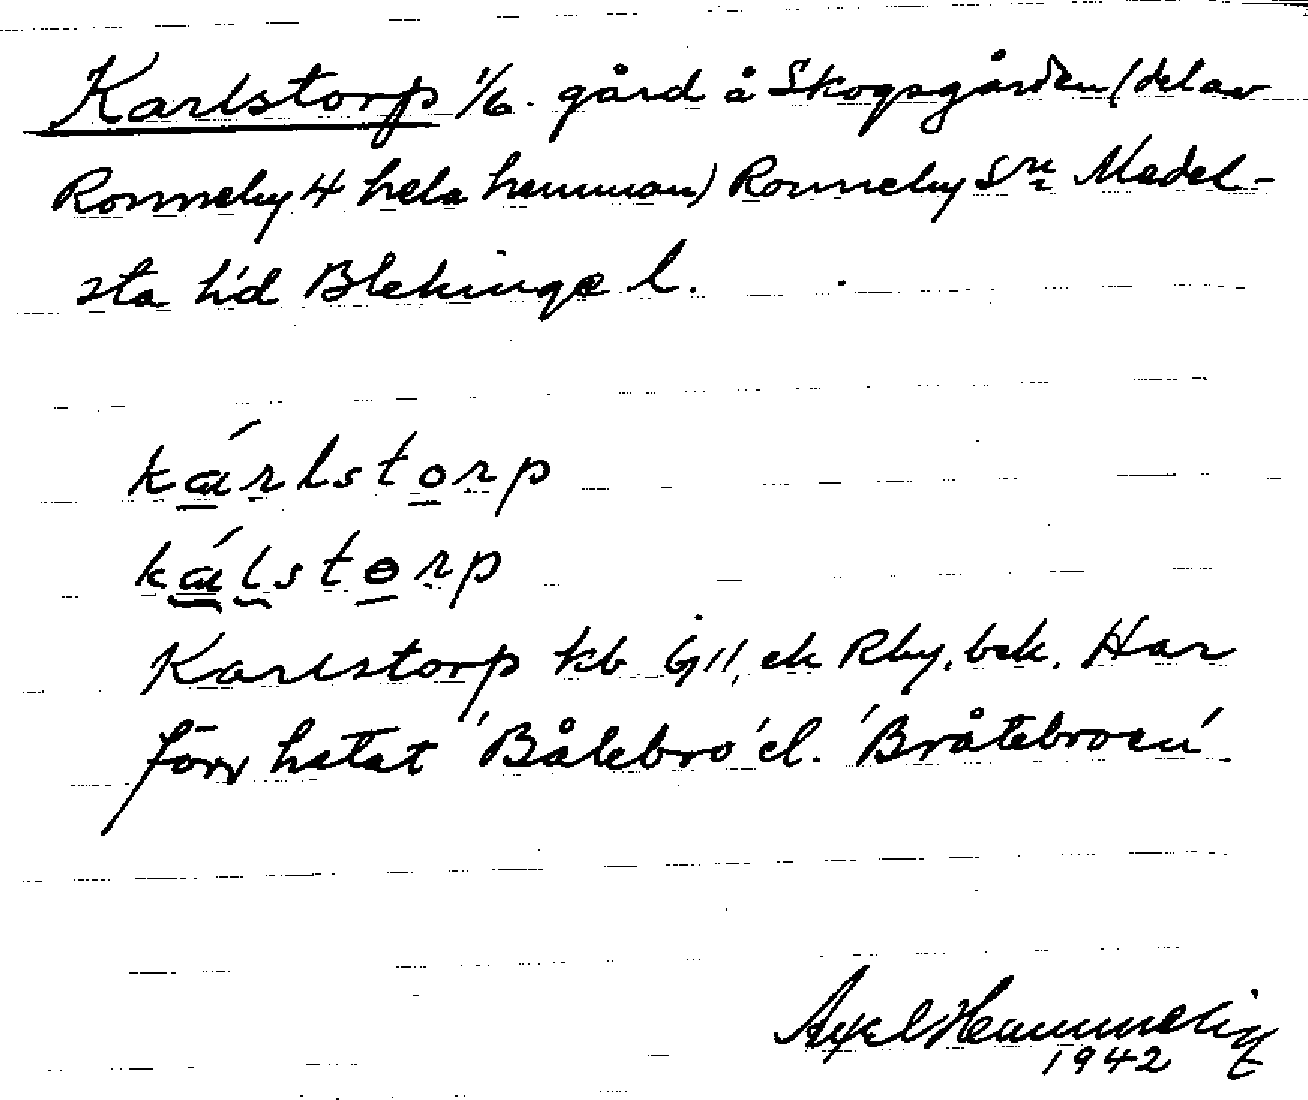 Karlstorp 1/6. gård å Skogsgården (del av
Ronneby 4 hela hemman) Ronneby sn Medel-
sta hd Blekinge l.
kárlstorp
kálstorp
Karlstorp kb G11, ek Rby, bek. Har
förr hetat 'Bålebro' el. 'Bråtebroen'
Axel
1942